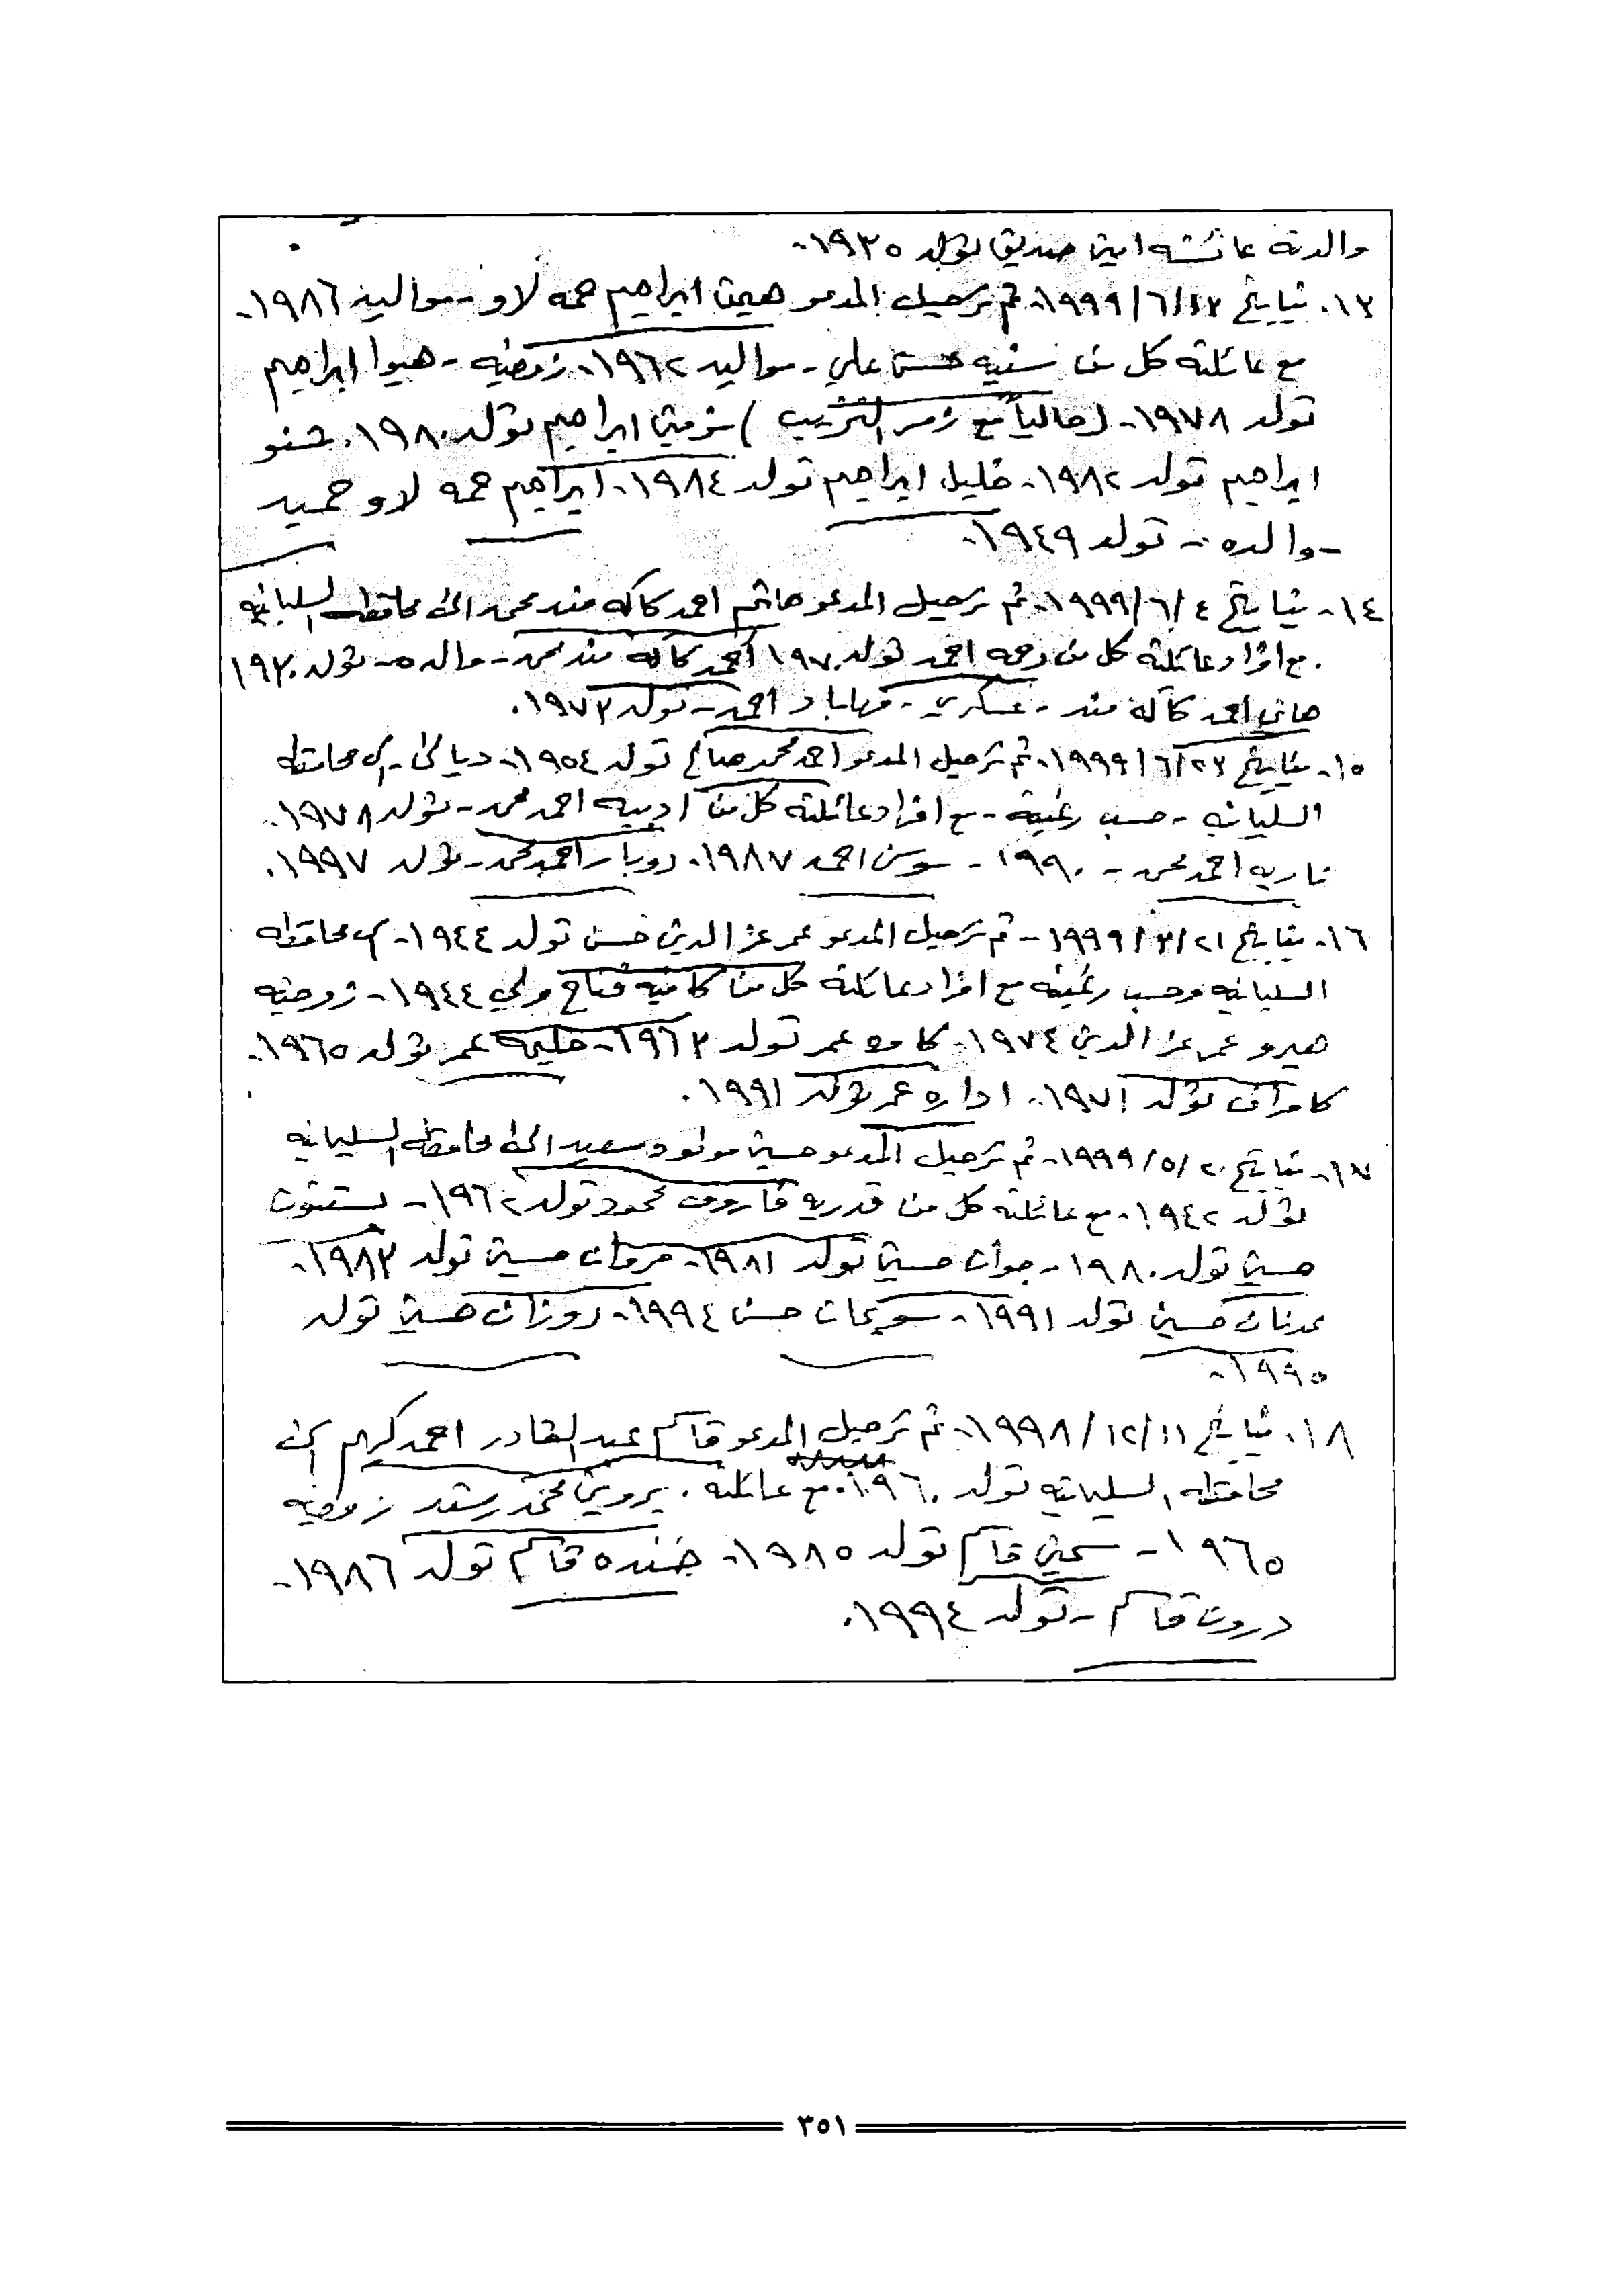 والدته عائشه امين صديق تولد ١٩٣٥.
١٣. بتاريخ ١٩٩٩/٦/١٣. تم ترحيل المدعو هيمن ابراهيم حمه لاو - مواليد ١٩٨٦-
مع عائلته كل من سنيه حسن علي - مواليد ١٩٦٢. زوجته - هيوا ابراهيم
تولد ١٩٧٨ - (حالياً مع زمر التخريب) نرمين ابراهيم تولد ١٩٨٠. شنو
ابراهيم تولد ١٩٨٢- خليل ابراهيم تولد ١٩٨٤. ابراهيم حمه لاو حميد
- والده - تولد ١٩٤٩.
١٤- بتاريخ ١٩٩٩/٦/٤. تم ترحيل المدعو حاتم احمد كاكه مند محمد الى محافظة السليمانيه
. مع افراد عائلته كل من رحمه احمد تولد ١٩٧٠ أحمد كاكه مند محمد - والده - تولد ١٩٢٠
هاني احمد كاكه مند - عسكري - مهاباد احمد - تولد ١٩٧٣.
١٥- بتاريخ ١٩٩٩/٦/٢٣. تم ترحيل المدعو احمد محمد صالح تولد ١٩٥٤- ديالى - الى محافظه
السليمانيه - حسب رغبته - مع افراد عائلته كل من اديبه احمد محمد - تولد ١٩٧٨.
ناريه احمد محمد - ١٩٩٠ - سوسن احمد ١٩٨٧. روبار احمد محمد - تولد ١٩٩٧.
١٦. بتاريخ ١٩٩٩/٣/٢١ - تم ترحيل المدعو عمر عز الدين حسن تولد ١٩٤٤- الى محافظه
السليمانيه وحسب رغبته مع افراد عائلته كل من كافيه فتاح ولي ١٩٤٤- زوجته
هيرو عمر عز الدين ١٩٧٤. كاوه عمر تولد ١٩٦٣- حليمه عمر تولد ١٩٦٥.
كامران تولد ١٩٧١. اداره عمر تولد ١٩٩١.
١٧- بتاريخ ١٩٩٩/٥/٢٠- تم ترحيل المدعو حسين مولود سعيد الى محافظه السليمانيه
تولد ١٩٤٢. مع عائلته كل من قدريه فاروق محمود تولد ١٩٦٢-
حسين تولد ١٩٨٠ - جوان حسين تولد ١٩٨١- مروان حسين تولد ١٩٨٣.
عدنان حسين تولد ١٩٩١- حسن ١٩٩٤- روزان حسين تولد
١٩٩٥.
١٨. بتاريخ ١٩٩٨/١٢/١١. تم ترحيل المدعو قاسم عبد القادر احمد كريم الى
محافظه السليمانيه تولد ١٩٦٠. مع عائلته. پروين محمد رشيد زوجته
١٩٦٥ - قاسم تولد ١٩٨٥. خنده قاسم تولد ١٩٨٦-
درون قاسم - تولد ١٩٩٤.
٣٥١